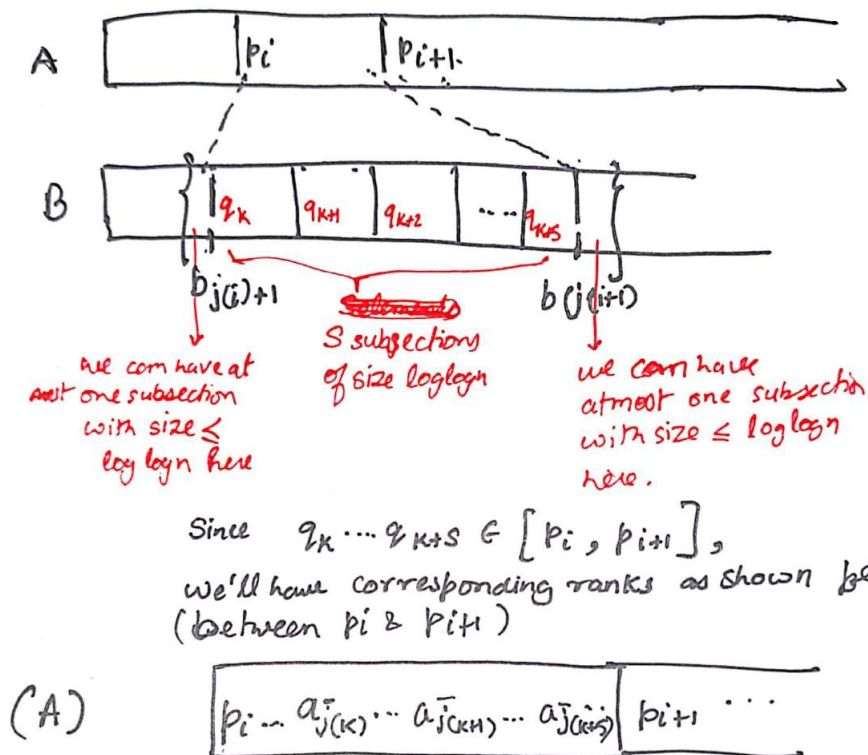 A pi pi+1
B qk qk+1 qk+2 .... qk+s
bj(i)+1 b(j(i+1)
S subsections
of size loglogn
we can have at
most one subsection
with size ≤
log logn here
we can have
atmost one subsection
with size ≤ loglogn
here.
Since qk ... qk+s ∈ [pi, pi+1],
we'll have corresponding ranks as shown be
(between pi & pi+1)
(A) pi ... aj̄(k) ... aj̄(k+1) ... aj̄(k+s) pi+1 ...